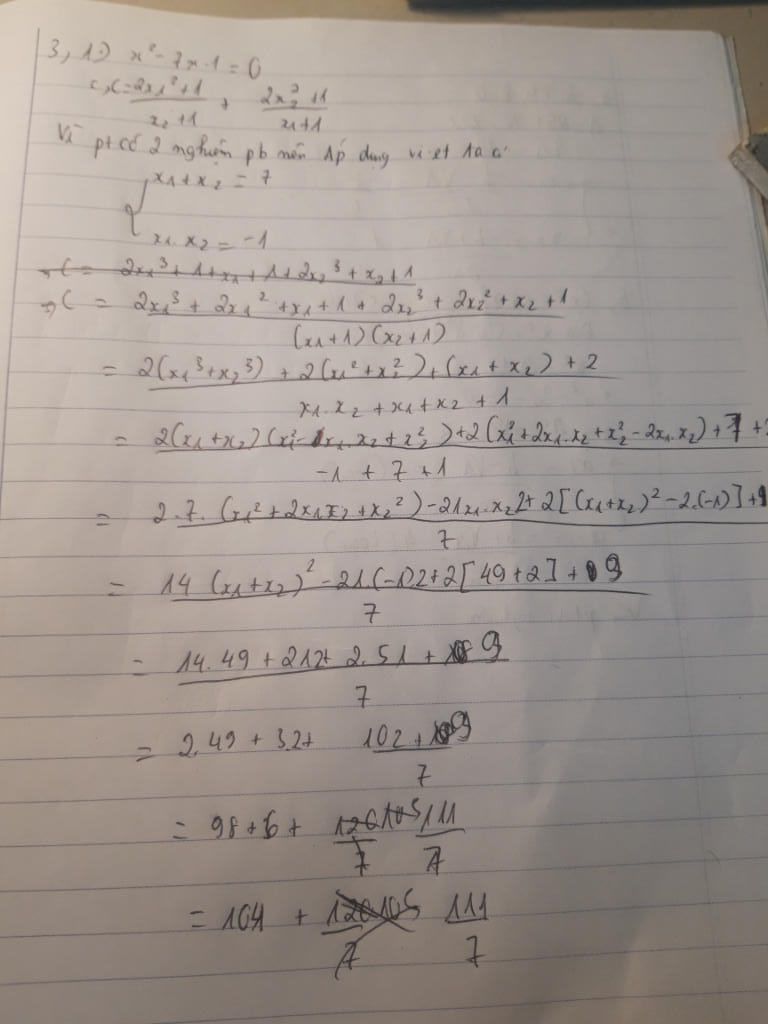 3, 1) x² - 7x - 1 = 0
c, C = (2x₁² + 1)/(x₂ + 1) + (2x₂² + 1)/(x₁ + 1)
Vì pt có 2 nghiệm pb nên áp dụng vi-et ta có
x₁ + x₂ = 7
x₁. x₂ = -1
⇒ C = 2x₁³ + 1 + x₁ + 1 + 2x₂³ + x₂ + 1
⇒ C = (2x₁³ + 2x₁² + x₁ + 1 + 2x₂³ + 2x₂² + x₂ + 1)/((x₁ + 1)(x₂ + 1))
= (2(x₁³ + x₂³) + 2(x₁² + x₂²) + (x₁ + x₂) + 2)/(x₁. x₂ + x₁ + x₂ + 1)
= (2(x₁ + x₂)(x₁² - x₁. x₂ + x₂²) + 2(x₁² + 2x₁. x₂ + x₂² - 2x₁. x₂) + 7 + 2)/(-1 + 7 + 1)
= (2.7.(x₁² + 2x₁x₂ + x₂²) - 21x₁. x₂ 2 + 2[(x₁ + x₂)² - 2.(-1)] + 9)/7
= (14 (x₁ + x₂)² - 21(-1)2 + 2[49 + 2] + 9)/7
= (14.49 + 21.2 + 2.51 + 9)/7
= 2.49 + 3.2 + (102 + 9)/7
= 98 + 6 + 120 105 111/7
= 104 + 120 105/7 111/7